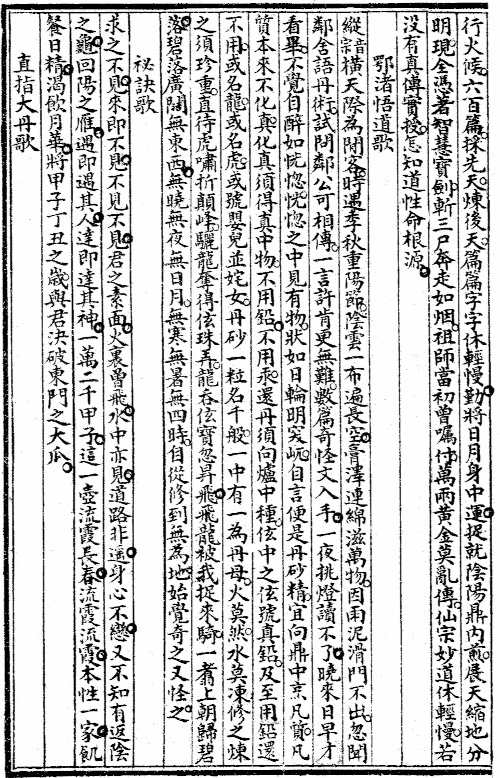 行火候六百篇採先天煉後天篇篇字字休輕慢勤將日月身中運捉就陰陽鼎內煎展天縮地分
明現全憑著智慧寶劍斬三尸奔走如烟祖師當初曾囑付萬兩黃金莫亂傳仙宗妙道休輕慢若
沒有真傳實授怎知道性命根源
鄂渚悟道歌
縱橫天際為閑客時遇季秋重陽節陰雲一布遍長空膏澤連綿滋萬物因雨泥滑門不出忽聞
鄰舍語丹術試問鄰公可相傳一言許肯更無難數篇奇怪文入手一夜挑燈讀不了曉來日早才
看畢不覺自醉如恍惚恍惚之中見有物狀如日輪明突屼自言便是丹砂精宜向鼎中烹凡質凡
質本來不化真化真須得真中物不用鉛不用汞還丹須向爐中種弦中之弦號真鉛及至用鉛還
不用或名龍或名虎或號嬰兒並姹女丹砂一粒名千般一中有一為丹母火莫然水莫凍修之煉
之須珍重直待虎嘯折顛峰驪龍奪得弦珠弄龍吞弦寶忽昇飛飛龍被我捉來騎一翥上朝歸碧
落碧落廣闊無東西無曉無夜無日月無寒無暑無四時自從修到無為地始覺奇之又怪之
祕訣歌
求之不見來即不見不見不見君之素面火裏曾飛水中亦見道路非遙身心不戀又不知有返陰
之龜回陽之雁遇即遇其人達即達其神一萬二千甲子這一壺流霞長春流霞流霞本性一家飢
餐日精渴飲月華將甲子丁丑之歲與君決破東門之大瓜
直指大丹歌